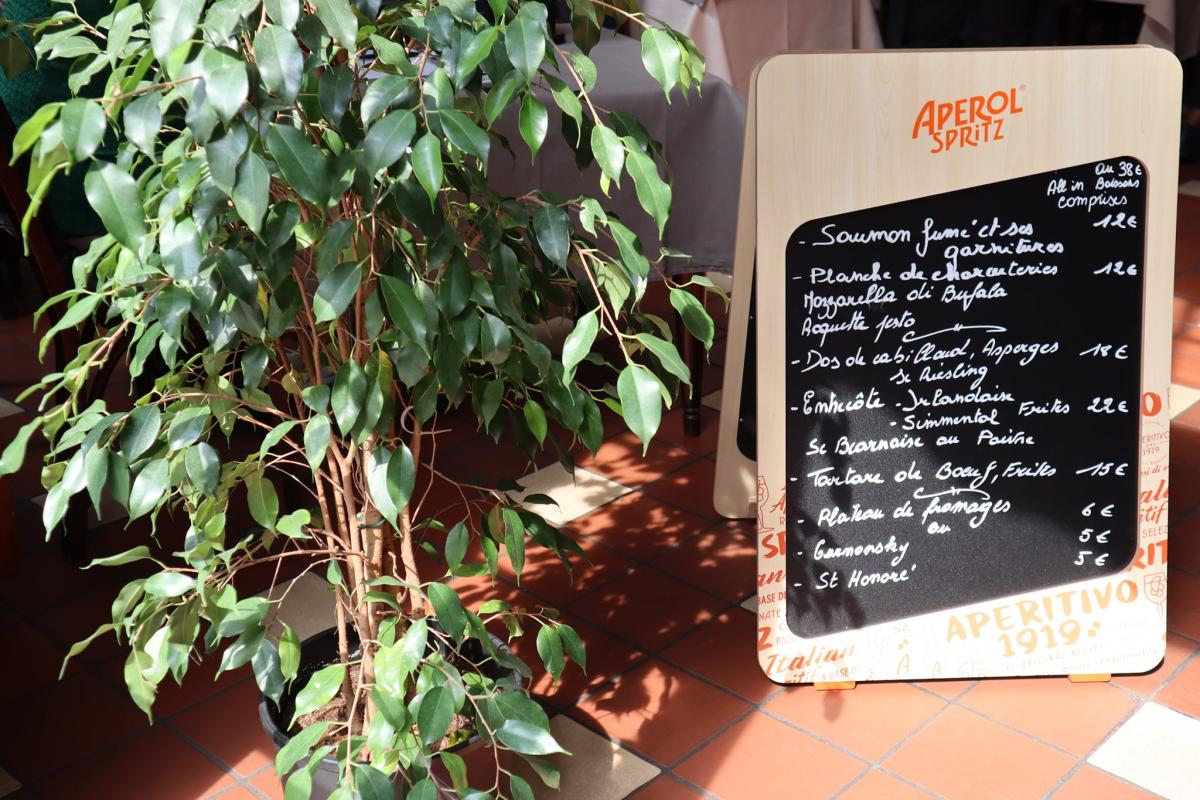 APEROL
SPRITZ
ou 38€
All in Boissons
comprises
- Saumon fumé et ses 12€
garnitures
- Planche de charcuteries 12€
Mozzarella di Bufala
Roquette pesto
- Dos de cabillaud, Asperges 18€
Sc Riesling
- Entrecôte - Irlandaise
- Simmental Frites 22€
Sc Béarnaise ou Poivre
- Tartare de Bœuf, Frites 15€
- Plateau de fromages 6€
ou
- Germonsky 5€
- St Honoré 5€
APERITIVO
1919
THE ORIGINAL RECIPE
enjoy responsibly
Italian